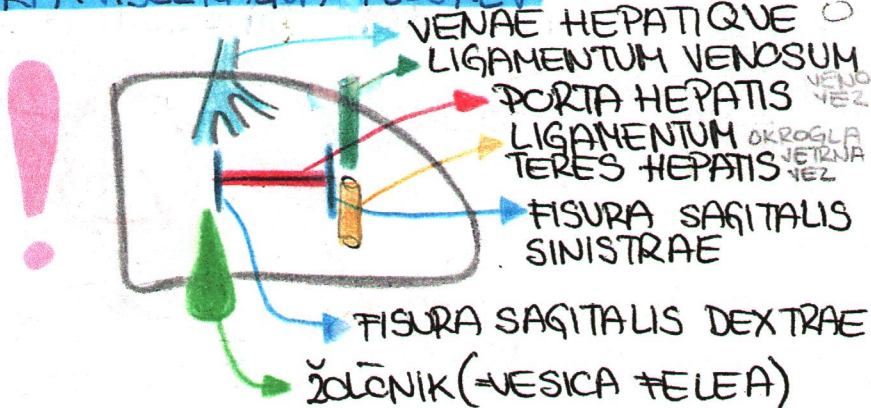 VENAE HEPATIQUE
LIGAMENTUM VENOSUM
PORTA HEPATIS VENO VEZ
LIGAMENTUM OKROGLA
TERES HEPATIS JETRNA VEZ
FISURA SAGITALIS
SINISTRAE
FISURA SAGITALIS DEXTRAE
ŽOLČNIK (=VESICA FELEA)